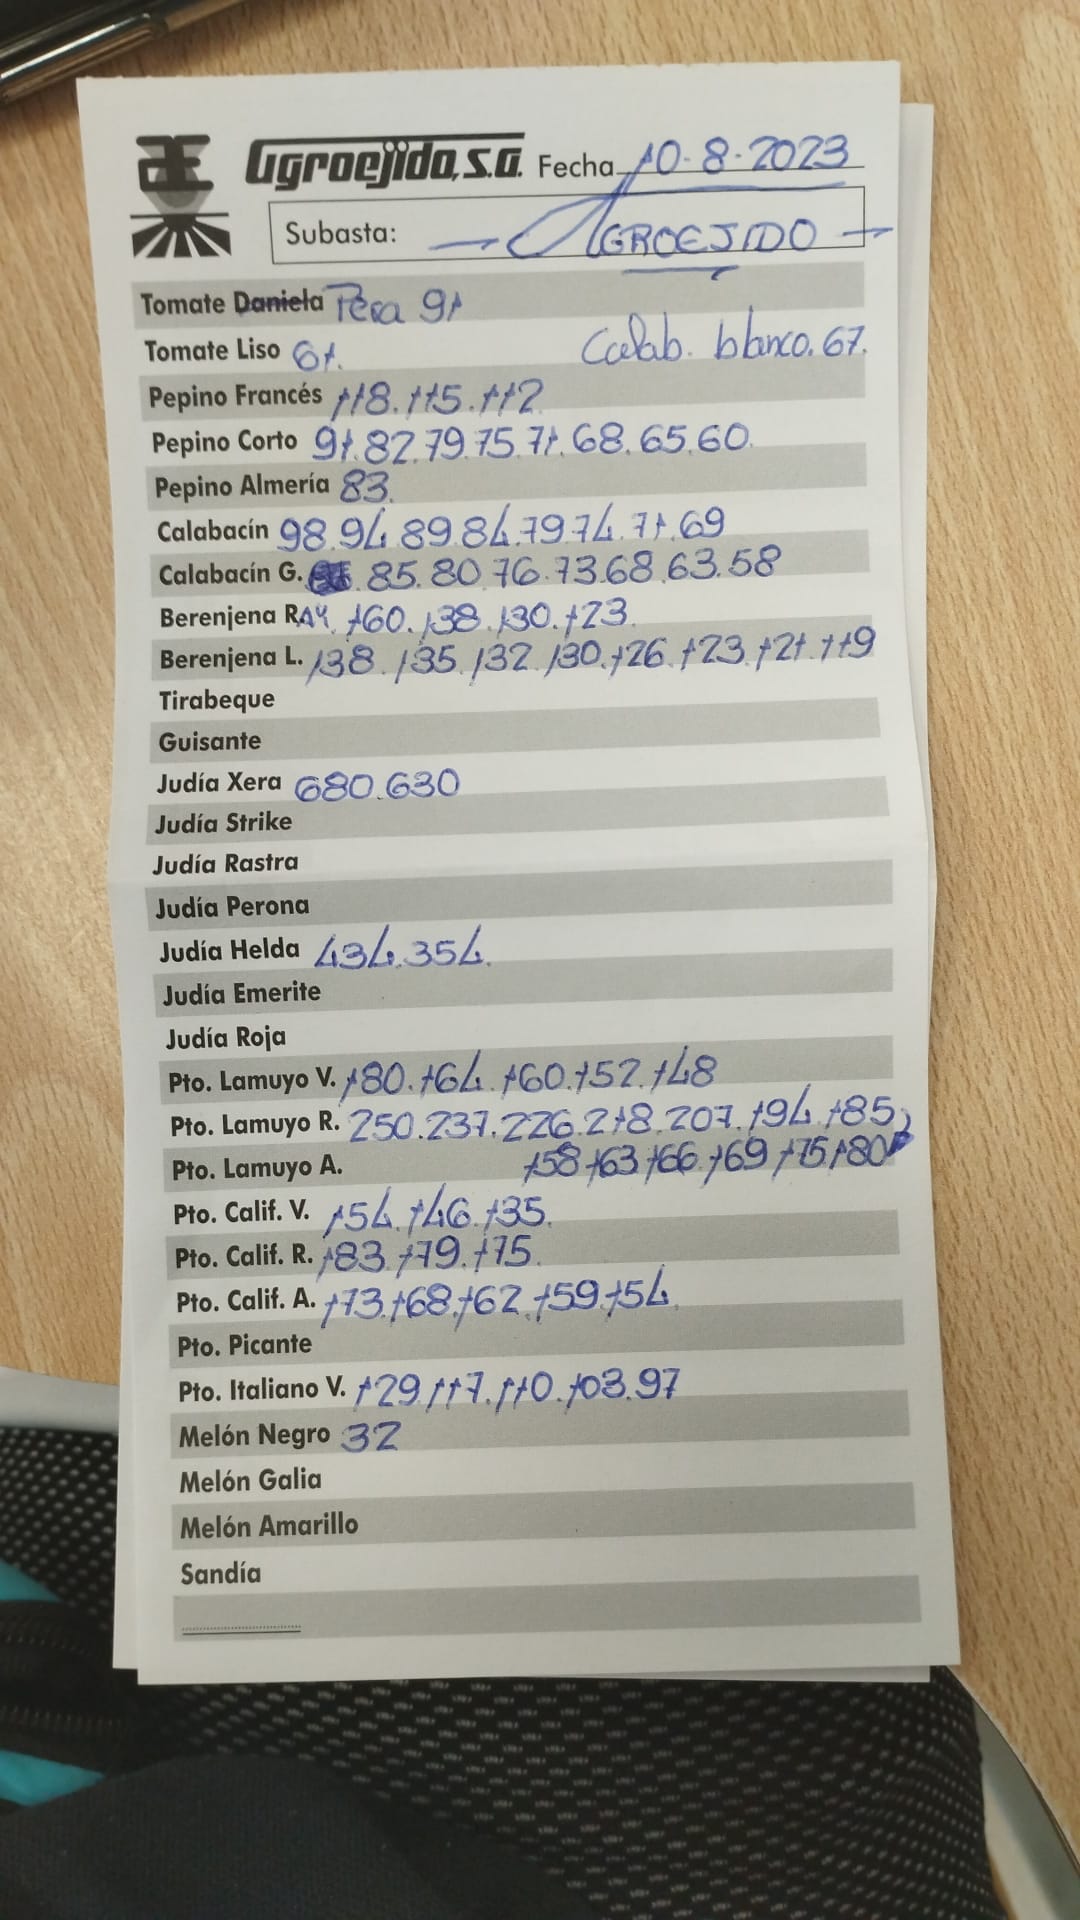 Æ Agroejido, S.A. Fecha 10-8-2023
Subasta: AGROEJIDO
Tomate Daniela Pera 91
Tomate Liso 61. Calab. blanco. 67.
Pepino Francés 118. 115. 112
Pepino Corto 91. 82. 79. 75. 71. 68. 65. 60.
Pepino Almería 83.
Calabacín 98. 94. 89. 84. 79. 74. 71. 69
Calabacín G. 85. 80. 76. 73. 68. 63. 58
Berenjena RAY. 160. 138. 130. 123.
Berenjena L. 138. 135. 132. 130. 126. 123. 121. 119
Tirabeque
Guisante
Judía Xera 680. 630
Judía Strike
Judía Rastra
Judía Perona
Judía Helda 434. 354.
Judía Emerite
Judía Roja
Pto. Lamuyo V. 180. 164. 160. 152. 148
Pto. Lamuyo R. 250. 237. 226. 218. 207. 194. 185
Pto. Lamuyo A. 158 163 166 169 175 180
Pto. Calif. V. 154. 146. 135.
Pto. Calif. R. 183. 179. 175.
Pto. Calif. A. 173. 168. 162. 159. 154.
Pto. Picante
Pto. Italiano V. 129. 117. 110. 103. 97
Melón Negro 32
Melón Galia
Melón Amarillo
Sandía